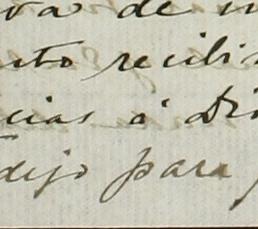 va de
nto recibi
cias á Dio
dijo para